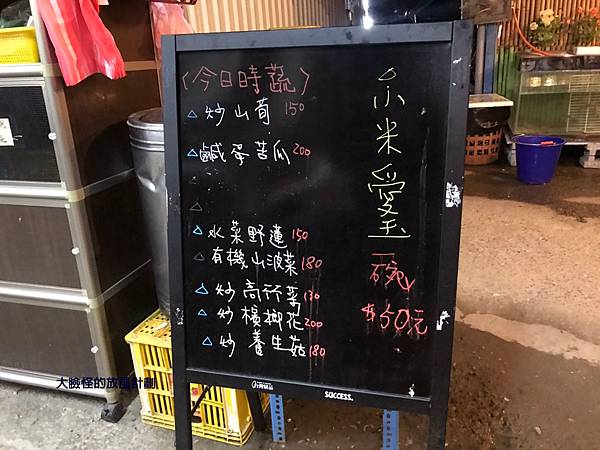 〈今日時蔬〉
炒山苘 150
鹹蛋苦瓜 200
水菜野蓮 150
有機山波菜 180
炒高竹筍 130
炒檳榔花 200
炒養生菇 180
小米愛玉
一碗
$50元
大臉怪的放風計劃
SUCCESS.